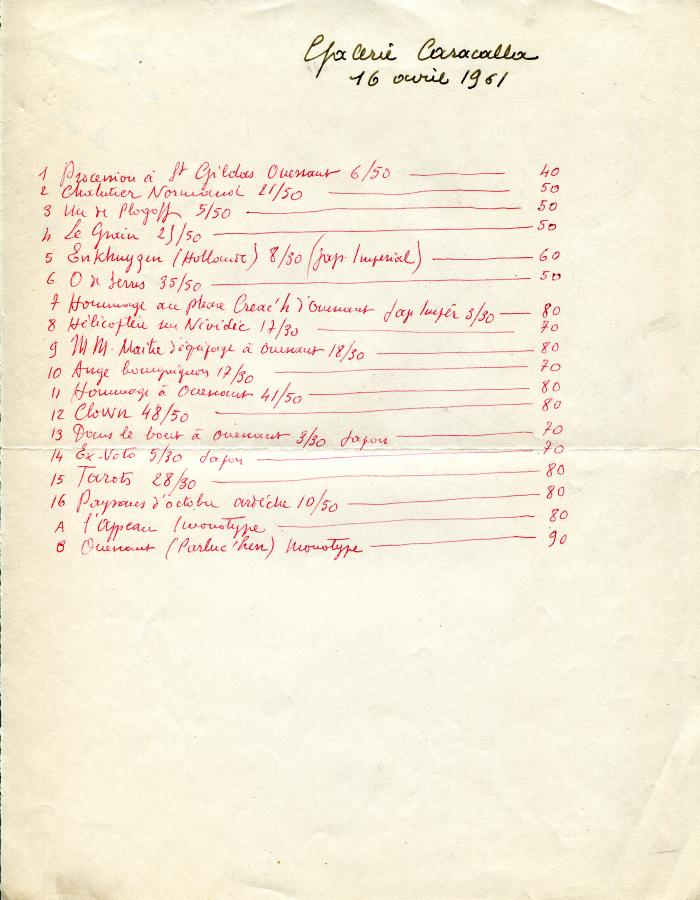 Galerie Caracalla
16 avril 1961
1 Procession à St Gildas Ouessant 6/50 — 40
2 Chalutier Normand 21/50 — 50
3 Vu de Plogoff 5/50 — 50
4 Le Grain 25/50 — 50
5 Enkhuygen (Hollande) 8/30 (Jap. Imperial) — 60
6 O de 35/50 — 50
7 Hommage au phare Creac'h d'Ouessant Jap Impér 3/30 — 80
8 Hélicoptère sur Nividic 17/30 — 70
9 MM. Maitre d'équipage à Ouessant 18/30 — 80
10 Ange bourguignon 17/30 — 70
11 Hommage à Ouessant 41/50 — 80
12 Clown 48/50 — 80
13 Dans le bourt à Ouessant 3/30 Japon — 70
14 Ex-Voto 5/30 Japon — 70
15 Tarots 28/30 — 80
16 Paysans d'octobre ardèche 10/50 — 80
A l'Appeau (monotype — 80
B Ouessant (Parluc'hen) Monotype — 90